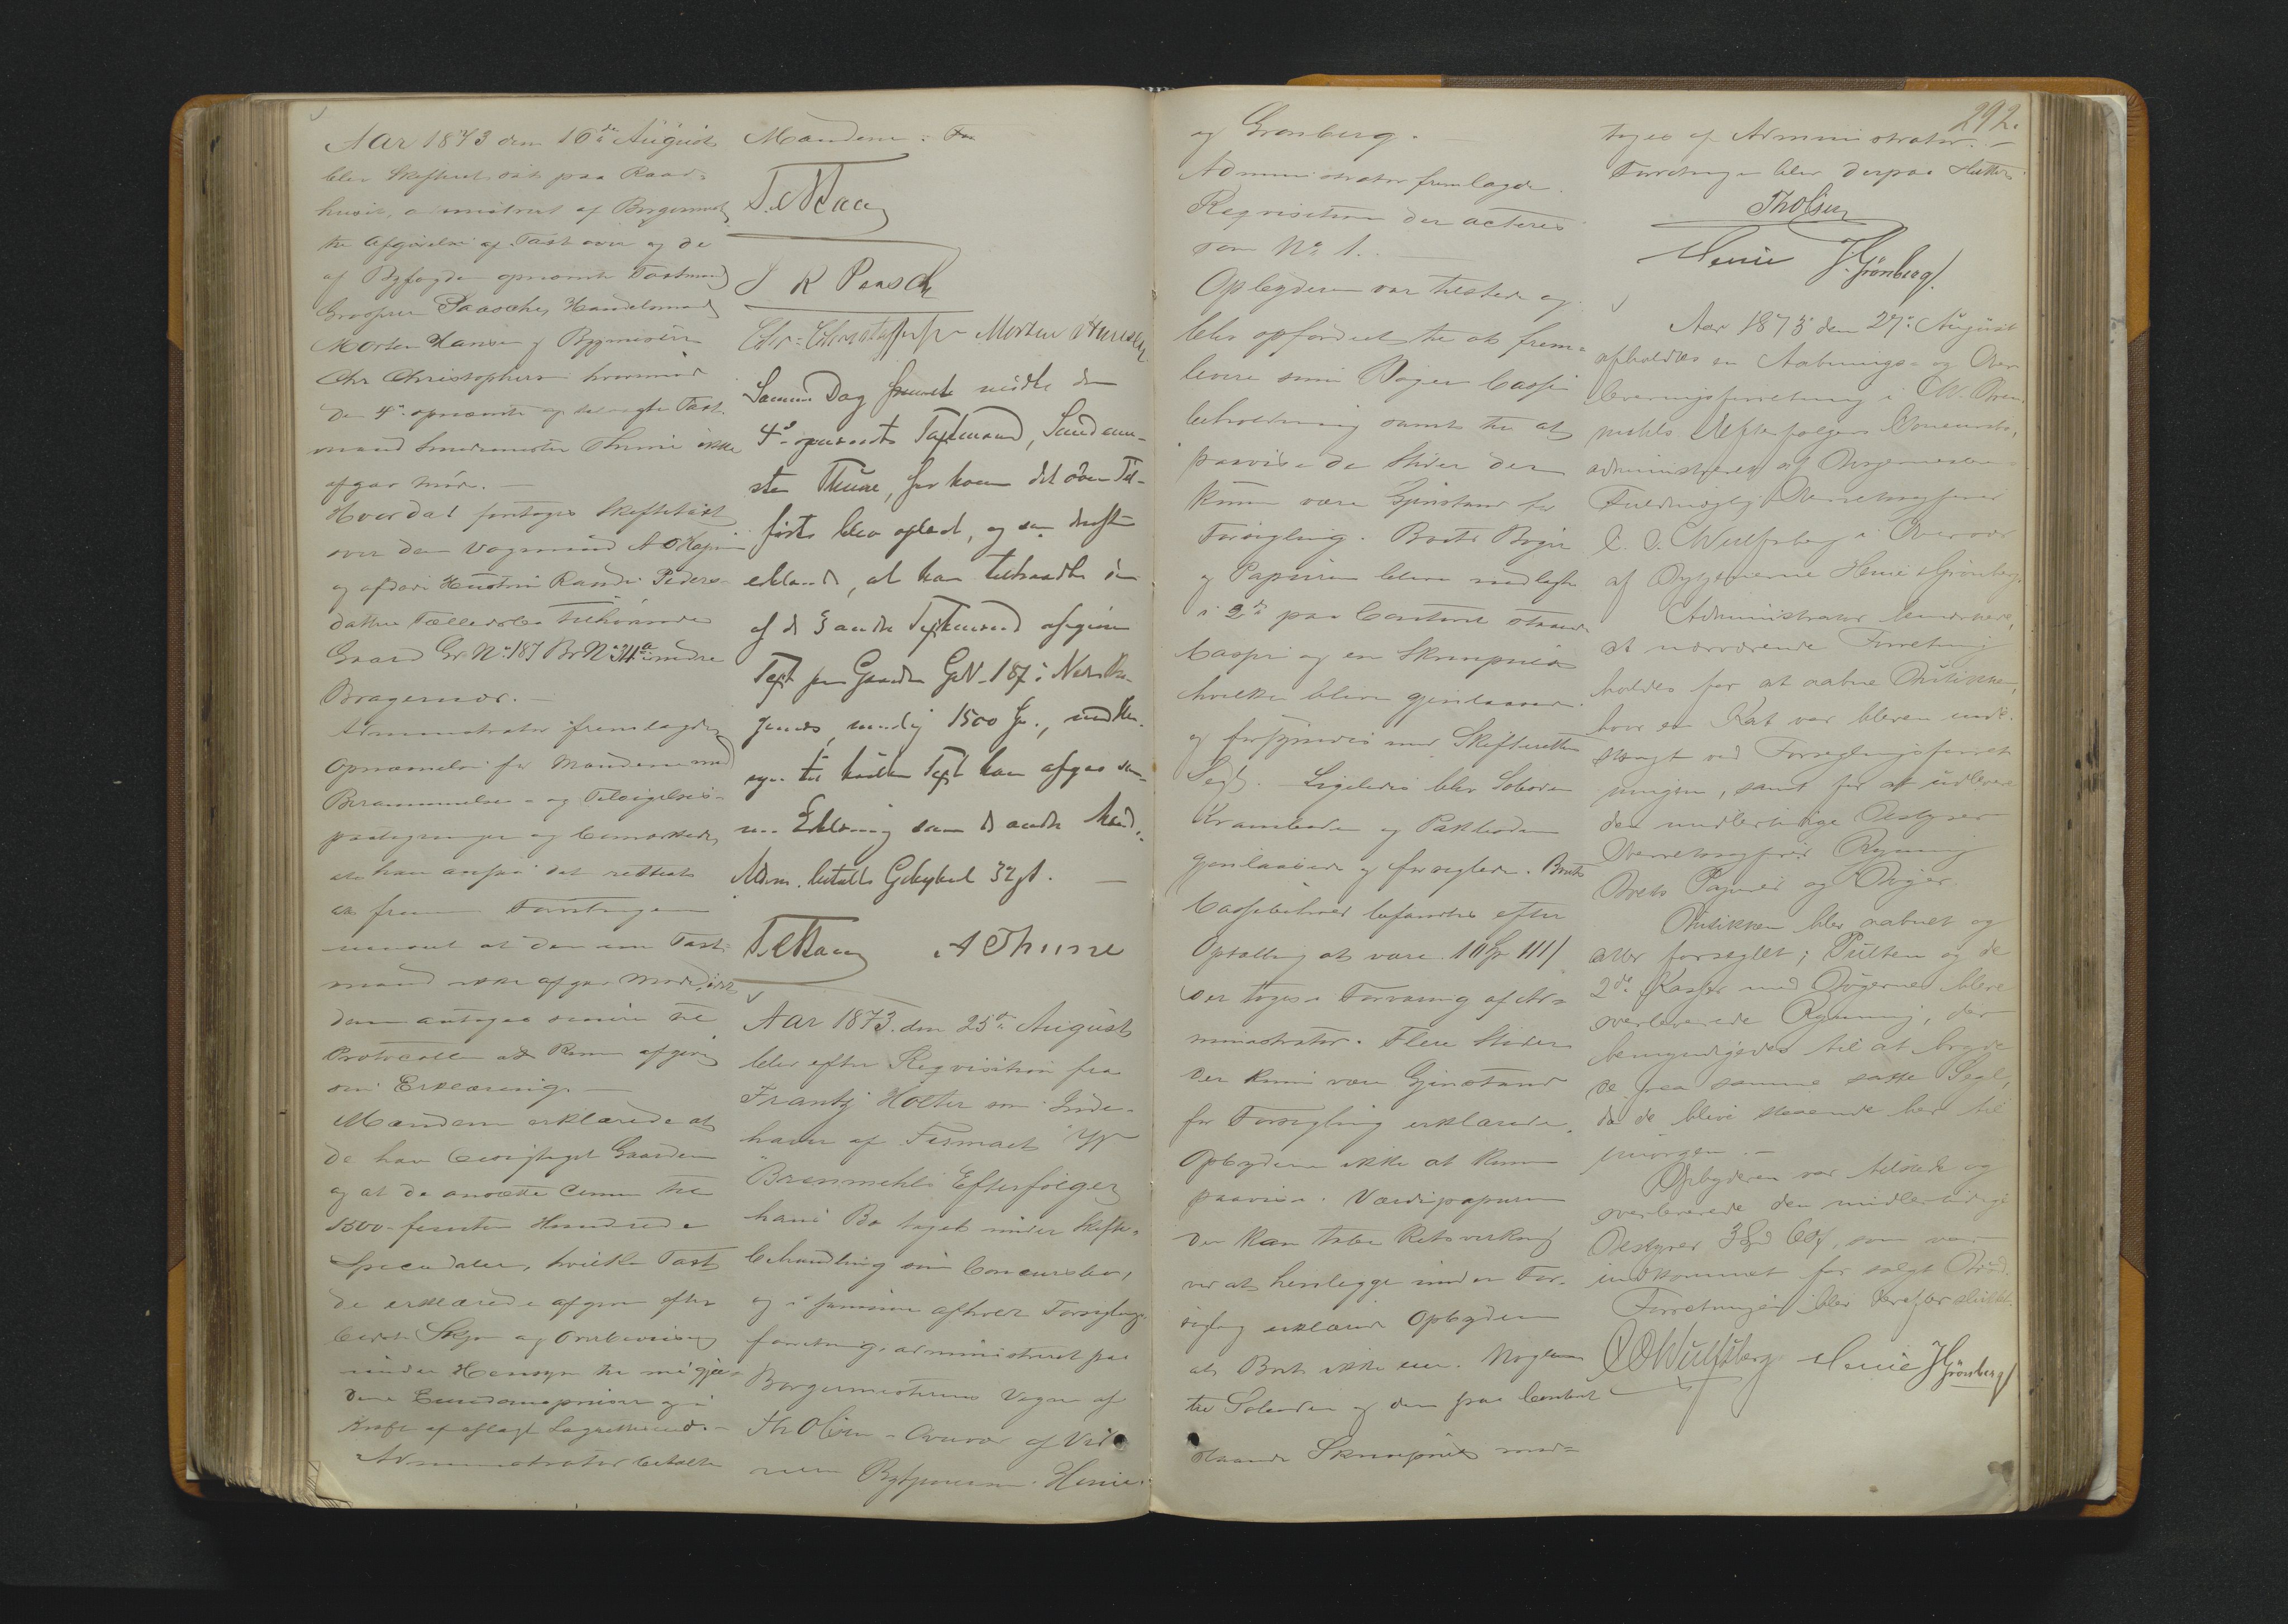 Aar 1873 den 16de August
blev Skifteret sat paa Raad-
huset, administreret af Borgermester
til Afgivelse af Taxt over og de
af Byfogden opnævnte Taxtmænd
Grosserer Paasche, Handelsmand
Morten Hansen og Bygmester
Chr Christophersen hvorimod
den 4de opnævnte og Taxt-
mand Smedemester Thune ikke
afgav Møde. —
Hvorda foretoges Skiftetaxt
over den Vognmand
og afdøde Hustru Randi Peders-
datters Fællesbo tilhørende
Gaard Gr. No 187 Br No 34a nedre
Bragernæs. —
Administrator fremlagde
Opnævnelse for Mændene med
Berammelses- og Tilsigelses-
paategninger og bemærkede
at han ansaa det rettest
at fremme Forretningen
uanset at den ene Taxt-
mand ikke afgav Møde, idet
den antages senere til
Protocollen at kunne afgive
sin Erklæring. —
Mændene erklærede at
de har besigtiget Gaarden
og at de ansætte denne til
1500 femten Hundrede
Speciedaler, hvilken Taxt
de erklærede afgiven efter
bedste Skjøn og Overbevisning
under Hensyn til nu gjæl-
dende Eiendomspriser og i
Kraft af aflagt Lagrettesed. —
Administrator betalte
Mændene:
T. Kraay
J R Paasch
Chr. Christoffersen Morten Hansen
Samme Dag mødte den
4de opnævnte Taxtmand, Smedeme-
ster Thune, for hvem det oven Til-
førte blev oplæst, og som derefter
erklærede, at han tiltraadte den
af de 3 andre Taxtmænd afgivne
Taxt paa Gaarden Gr N. 187 i Nedre Bra-
gernæs, nemlig 1500 Spd., med Hen-
syn til hvilken Taxt han afgav sam-
me Erklæring som de andre Mænd.
Adm. betalte Gebyhret 32 s. —
T. Kraay A Thune
Aar 1873 den 25de August
blev efter Reqvisition fra
Frantz Holter som Inde-
haver af Firmaet W
Brenmehls Efterfølger
hans Bo taget under Skifte-
behandling som Concursbo,
og i samme afholdt Forseglings-
forretning administreret paa
Borgermesterens Vegne af
Th Olsen Overvær af Vid-
nerne Henie
og Grønberg.
Administrator fremlagde
Reqvisition der acteres
som No 1.
Opbyderen var tilstede og
blev opfordret til at frem-
levere sine Bøger Casse-
beholdning samt til at
paavise de Steder der
kunne være Gjenstand for
Forsegling. Boets Bøger
og Papirer bleve nedlagte
i 2de paa Contoret staaende
Casser og en Skrivepult
hvilke bleve gjenlaasede
og forsynede med Skifterettens
Segl. Ligeledes blev Soboden
Kramboden og Pakboden
gjenlaasede og forseglede. Boets
Cassebehold befandtes efter
Optælling at være 10 Spd 111 s
der toges i Forvaring af Ad-
ministrator. Flere Steder
der kunne være Gjenstand
for Forsegling erklærede
Opbyderen ikke at kunne
paavise. Værdipapirer
der kan tabe Retsvirkning
ved at henlegge under For-
segling erklærede Opbyderen
at Boet ikke eier. Nøglerne
til Soboden og den paa Contoret
staaende Skrivepult mod-
292.
toges af Administrator. —
Forretningen blev derpaa sluttet
Th Olsen
Henie J. Grønberg.
Aar 1873 den 27de August
afholdtes en Aabnings- og Over-
leveringsforretning i W. Bren-
mehls Efterfølgers Concursbo,
administreret af Borgermesterens
Fuldmægtig Overretssagfører
C. O. Wulfsberg i Overvær
af Vidnerne Henie & Grønberg.
Administrator bemærkede,
at nærværende Forretning
holdes for at aabne Butikken,
hvor en Kat var bleven inde-
stængt ved Forseglingsforret-
ningen, samt for at udlevere
den midlertidige Bestyrer
Overretssagfører Rynning
Boets Papirer og Bøger.
Butikken blev aabnet og
atter forseglet; Pulten og de
2de Kasser med Bøgerne bleve
overleverede Rynning, der
bemyndigedes til at bryde
de paa samme satte Segl,
da de blive staaende her til
imorgen. —
Opbyderen var tilstede og
overleverede den midlertidige
Bestyrer 3 Spd 60 s, som var
indkommet for solgt Brød.
Forretningen blev derefter sluttet.
C O Wulfsberg Henie J Grønberg